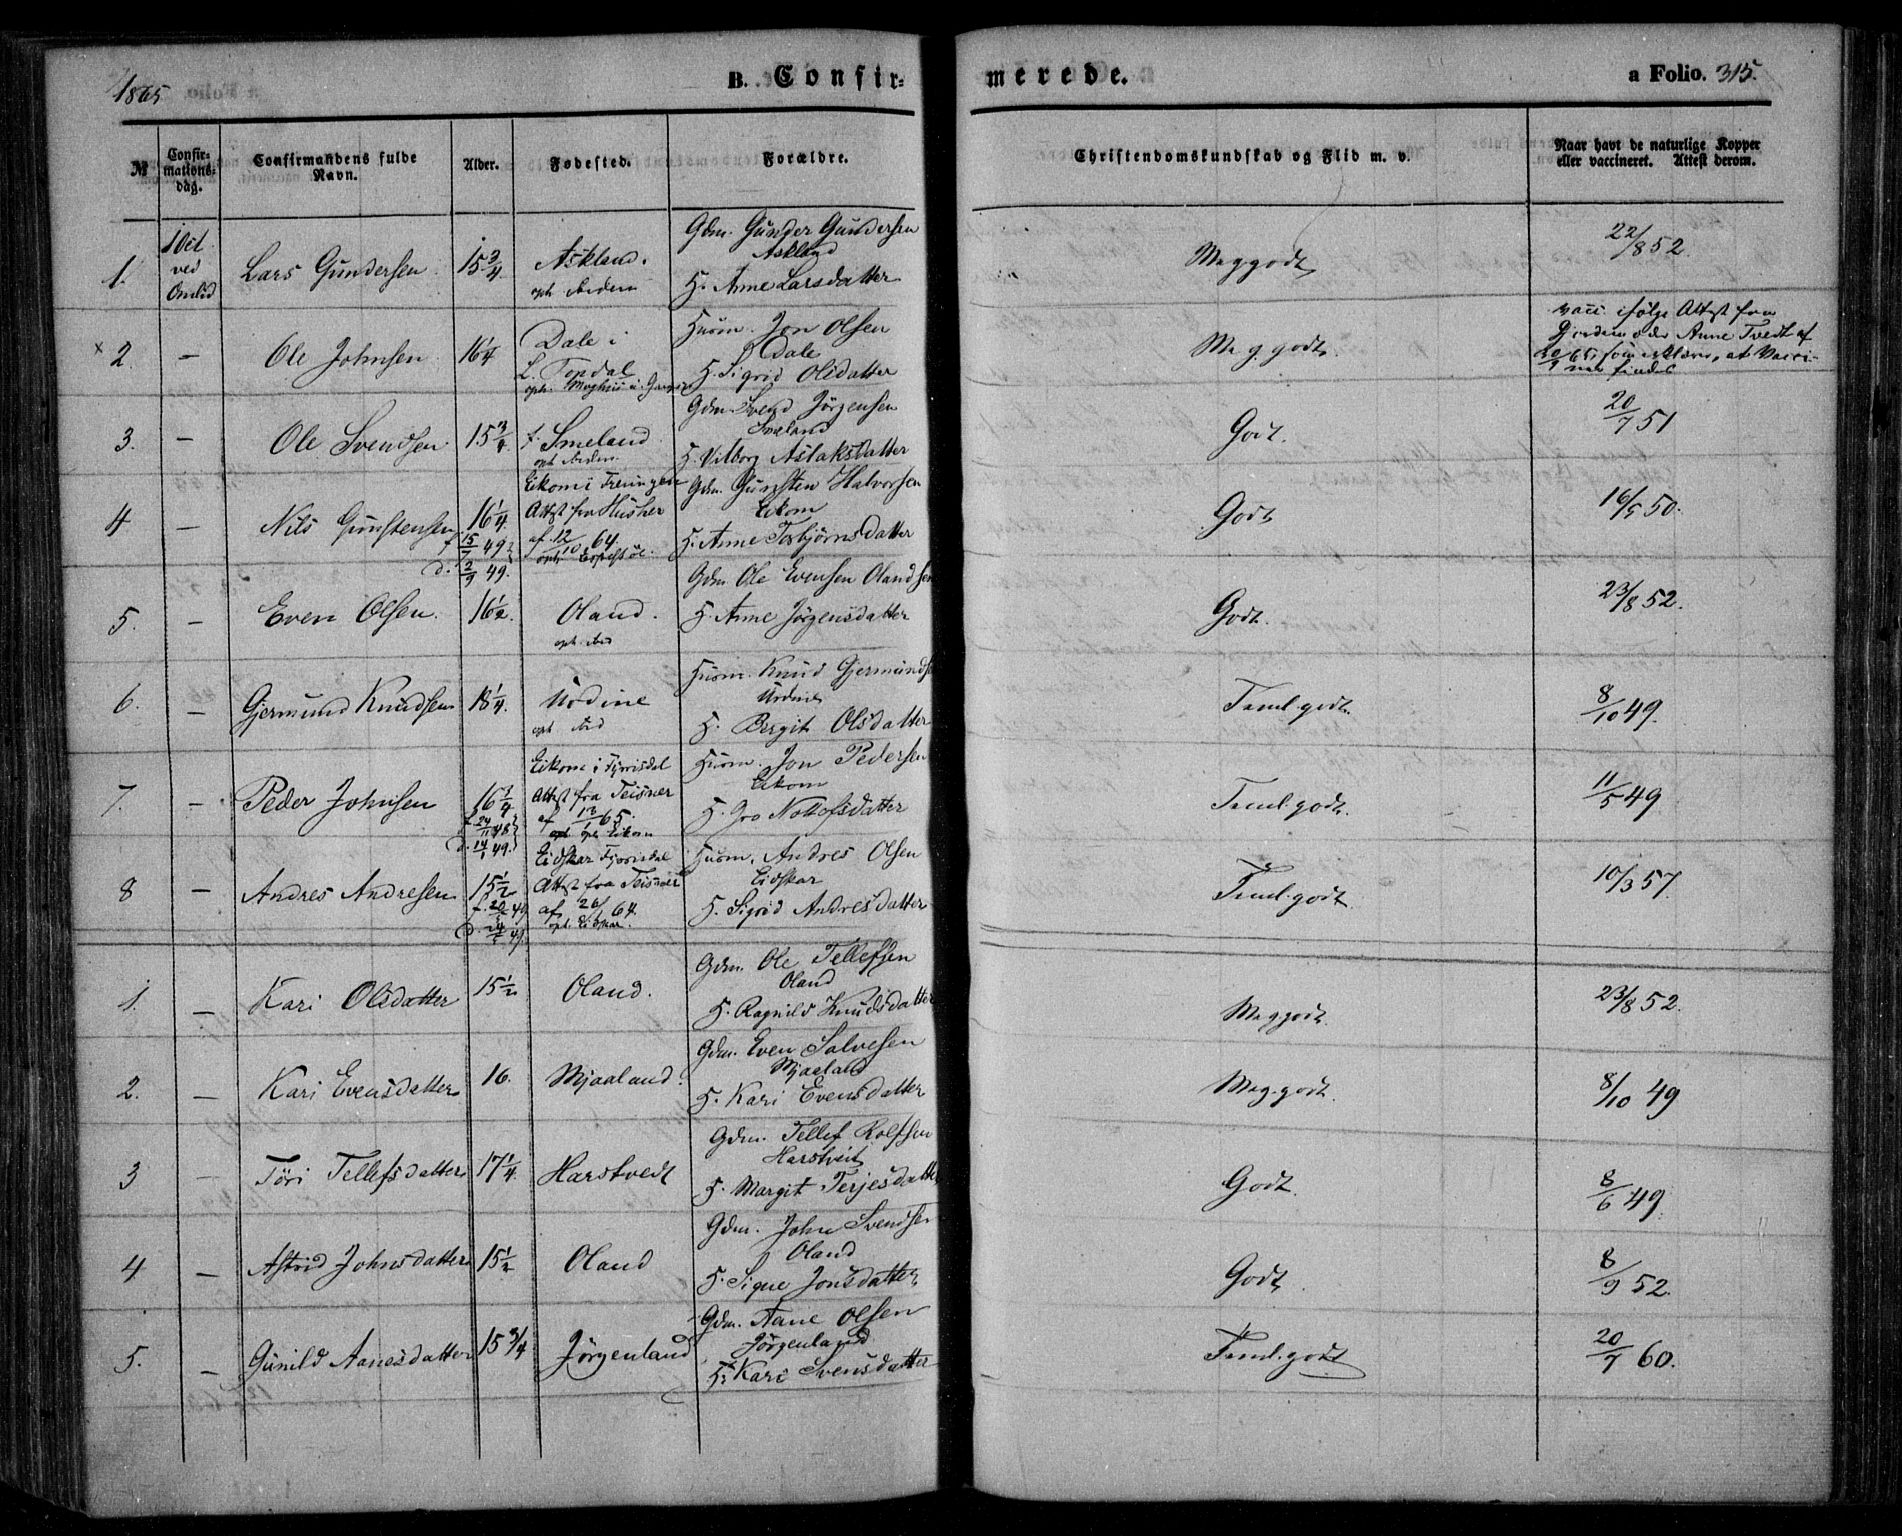 1865
B. Confir-
merede.
a Folio. 315.
No
Confir-
mations-
dag.
Confirmandens fulde
Navn.
Alder.
Fødested.
Forældre.
Christendomskundskab og Flid m. v.
Naar havt de naturlige Kopper
eller vaccineret. Attest derom.
1.
1 Oct.
ved
Omlid
Lars Gundersen
15 3/4
Askland.
Gdm. Gunder Gundersen
Askland
H. Anne Larsdatter
Meg godt
22/8 52.
x 2.
—
Ole Johnsen
16 1/4
Dale i
L. Topdal
Huusm. Jon Olsen
Dale
H. Sigrid Olsdatter
Meg godt.
vacc. ifølge Attest fra
Gjordemoder Anne Tvedt af
3.
—
Ole Svendsen
15 3/4
f. Smeland
Gdm. Svend Jörgensen
Smeland
H. Vilborg Aslaksdatter
Godt.
20/7 51
4
—
Nils Gunstensen
16 1/4.
f 15/7 49
d. 2/9 49.
Attest fra Husher
af 12/10 64.
Gdm. Gunsten Halvorsen
Eikom
H. Anne Torbjörnsdatter
Godt
16/5 50.
5.
—
Even Olsen.
16 1/2.
Oland.
Gdm Ole Evensen Oland
H. Anne Jörgensdatter
Godt.
23/8 52.
6.
—
Gjermund Knudsen
18 1/4.
Urdine
Huusm. Knud Gjermunds
Urdine
H. Bergit Olsdatter
Taml. godt.
8/10 49.
7.
—
Peder Johnsen
16 3/4
f. 24/11 48
d. 14/1 49.
Eikom i Fyrrisdal
Attest fra Teisner
af 13/1 65.
Huusm. Jon Pedersen
Eikom
H. Gro Nottofsdatter
Taml. godt.
11/5 49
8
—
Andres Andresen
15 1/2
Eidskar Fyrrisdal
Attest fra Teisner
af 26/ 64.
opt. Eidskar.
Huusm. Andres Olsen
Eidskar
H. Sigrid Andresdatter
Taml. godt.
10/3 57.
1.
—
Kari Olsdatter
15 1/2
Oland.
Gdm. Ole Tellefsen
Oland
H. Ragnild Knudsdatter
Meg godt.
23/8 52.
2.
—
Kari Evensdatter
16.
Mjaaland.
Gdm. Even Salvesen
Mjaaland
H. Kari Evensdatter
Meg. godt.
8/10 49
3
—
Töri Tellefsdatter
17 1/4.
Harstvedt
Gdm. Tellef Rolfsen
Harstveit
H. Margit Terjesdatter
Godt.
8/6 49.
4
—
Astrid Johnsdatter
15 1/2
Oland
Gdm. John Svendsen
Oland
H. Signe Jonsdatter
Godt.
8/9 52.
5.
—
Gunild Aanesdatter
15 3/4
Jörgenland
Gdm. Aane Olsen
Jörgenland
H. Kari Svensdatter
Taml. godt
20/7 60.